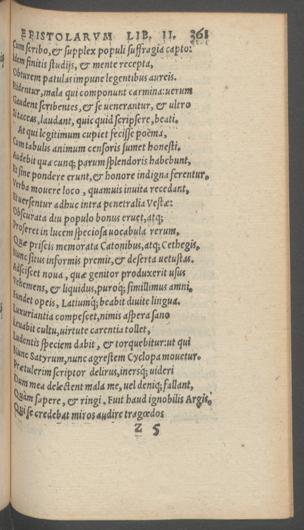 EPISTOLARVM LIB. II. 361
Cum scribo, & supplex populi suffragia capto:
Idem finitis studijs, & mente recepta,
Obturem patulas impune legentibus aureis.
Ridentur, mala qui componunt carmina: uerum
Gaudent scribentes, & se uenerantur, & ultro
Si taceas, laudant, quicquid scripsere, beati.
At qui legitimum cupiet fecisse poëma,
Cum tabulis animum censoris sumet honesti,
Audebit quæcunq; parum splendoris habebunt,
Et sine pondere erunt, & honore indigna ferentur,
Verba mouere loco, quamuis inuita recedant,
Et uersentur adhuc intra penetralia Vestæ:
Obscurata diu populo bonus eruet, atq;
Proferet in lucem speciosa uocabula rerum,
Quæ priscis memorata Catonibus, atq; Cethegis,
Nunc situs informis premit, & deserta uetustas.
Adsciscet noua, quæ genitor produxerit usus
Vehemens, & liquidus, puroq; simillimus amni,
Fundet opeis, Latiumq; beabit diuite lingua.
Luxuriantia compescet, nimis aspera sano
Leuabit cultu, uirtute carentia tollet,
Ludentis speciem dabit, & torquebitur: ut qui
Nunc Satyrum, nunc agrestem Cyclopa mouetur.
Prætulerim scriptor delirus, inersq; uideri
Dum mea delectent mala me, uel deniq; fallant,
Quàm sapere, & ringi. Fuit haud ignobilis Argis,
Qui se credebat miros audire tragœdos
Z 5